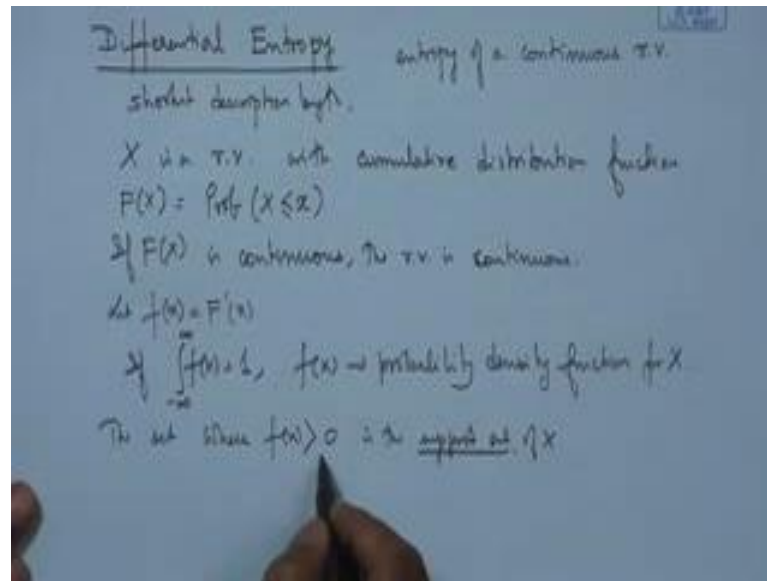 Differential Entropy entropy of a continuous r.v.
shortest description length.
X is a r.v. with cumulative distribution function
F(x) = Prob (X ≤ x)
If F(x) is continuous, the r.v. is continuous.
Let f(x) = F'(x)
If ∫_{-∞}^{∞} f(x) = 1, f(x) → probability density function for X
The set where f(x) > 0 is the support set of X